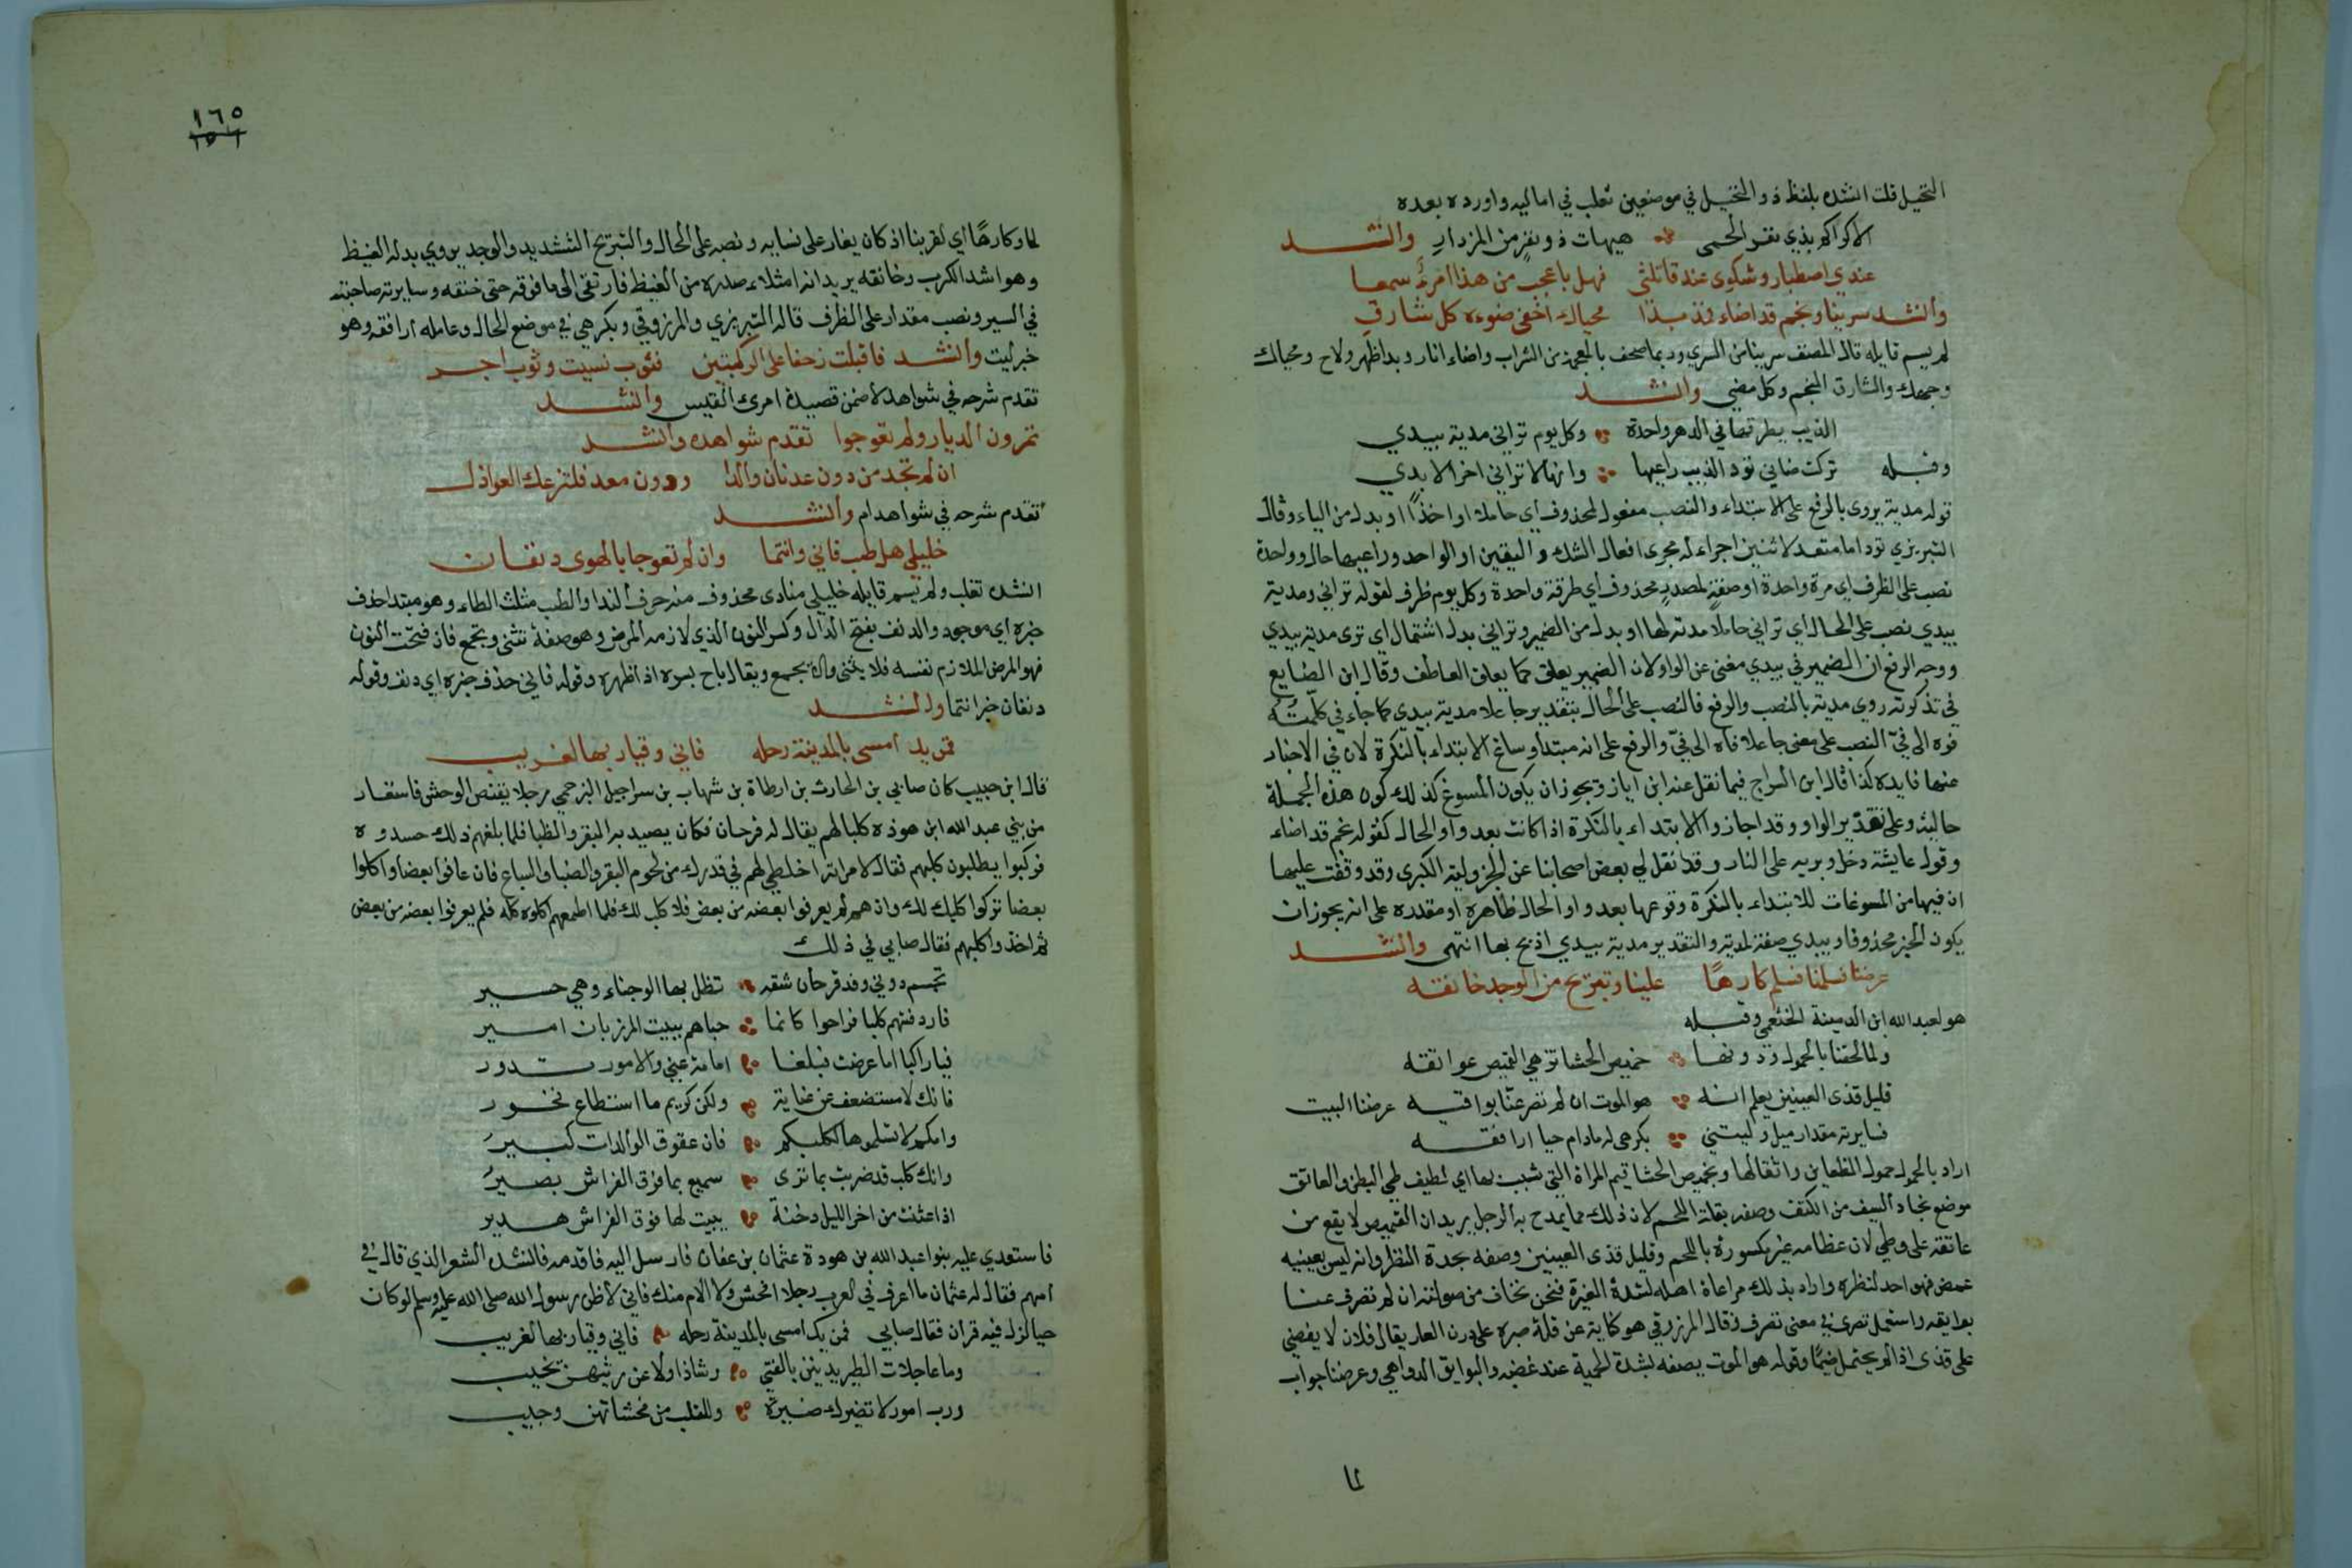 النخيل قلت انشده بلفظ ذو النخيل في موضعين ثعلب في اماليه واورده بعده
الا كراكم بذي بقر الحمى هيهات ذو بقر من المزدار وانشد
عندي اصطبار وشكوى عند قاتلتي فهل باعجب من هذا امرؤ سمعا
وانشد سرينا ونجم قد اضاء فمذ بدا محياك اخفى ضوءه كل شارق
لم يسم قايله قال المصنف سرينا من السري وربما صحف بالمعجمة من الشراب واضاء انار وبدا ظهر ولاح ومحياك
وجهك والشارق النجم وكل مضي وانشد
الذيب يطرقها في الدهر واحدة وكل يوم تراني مدية بيدي
وقبله تركت ضاني تود الذيب راعيها وانها لا تراني اخر الابدي
قوله مدية يروى بالرفع على الابتداء والنصب مفعول لمحذوف اي حاملا او اخذا او بدل من الياء وقال
التبريزي تود اما متعد لاثنين اجراء له مجرى افعال الشك واليقين او لواحد وراعيها حال وواحدة
نصب على الظرف اي مرة واحدة او صفة لمصدر محذوف اي طرقة واحدة وكل يوم ظرف لقوله تراني ومدية
بيدي نصب على الحال اي تراني حاملا مدية لها او بدل من الضمير وتراني بدل اشتمال اي ترى مدية بيدي
ووجه الرفع ان الضمير في بيدي مغني عن الواو لان الضمير يعلق كما يعلق العاطف وقال ابن الضايع
في تذكرته روي مدية بالنصب والرفع فالنصب على الحال بتقدير جاعلا مدية بيدي كما جاء في كلمته
فوه الى في النصب على معنى جاعلا فاه الى في والرفع على انه مبتدا وساغ الابتداء بالنكرة لان في الاخبار
عنها فايدة كذا قال ابن السراج فيما نقل عنه ابن اياز ويجوز ان يكون المسوغ كذلك كون هذه الجملة
حالية وعلى تقدير الواو وقد اجازوا الابتداء بالنكرة اذا كانت بعد واو الحال كقوله نجم قد اضاء
وقول عايشة دخل وبرمة على النار وقد نقل لي بعض اصحابنا عن الجزولية الكبرى وقد وقفت عليها
ان فيها من المسوغات للابتداء بالنكرة وقوعها بعد واو الحال ظاهرة او مقدرة على انه يجوز ان
يكون الخبر محذوفا وبيدي صفة لمدية والتقدير مدية بيدي اذبح بها انتهى وانشد
عرضنا فسلمنا فسلم كارها علينا وتبريح من الوجد خانقه
هو لعبد الله ابن الدمينة الخثعمي وقبله
ولما لحقنا بالحمول ودونها خميص الحشا توهي القميص عواتقه
قليل قذى العينين يعلم انه هو الموت ان لم تصر عنا بوايقه عرضنا البيت
فسايرته مقدار ميل وليتني بكرهي له ما دام حيا ارافقه
اراد بالحمول حمول الظعاين واثقالها وبخميص الحشا قيم المراة التي شبب بها اي لطيف طي البطن والعاتق
موضع نجاد السيف من الكتف وصفه بقلة اللحم لان ذلك مما يمدح به الرجل يريد ان القميص لا يقع من
عاتقه على وطي لان عظامه غير مكسورة باللحم وقليل قذى العينين وصفه بحدة النظر وانه ليس بعينيه
غمص فهو احد لنظره واراد بذلك مراعاة اهله لشدة الغيرة فنحن نخاف من صولته ان لم تصرف عنا
بوايقه واستعمل تصرى في معنى تصرف وقال المرزوقي هو كناية عن قلة صبره على درن العار يقال فلان لا يغضي
على قذى اذا لم يحتمل ضيما وقوله هو الموت يصفه بشدة الحمية عند غضبه والبوايق الدواهي وعرضنا جواب
لما
١٦٥
١٥١
لما وكارها اي لقربنا اذ كان يغار على نسايه ونصبه على الحال والتبريح التشديد والوجد يروي بدله الغيظ
وهو اشد الكرب وخانقه يريد انه امتلاء صدره من الغيظ فارتقى الى ما فوقه حتى خنقه وسايرته صاحبته
في السير ونصب مقدار على الظرف قاله التبريزي والمرزوقي وبكرهي في موضع الحال وعامله ارافقه وهو
خبر ليت وانشد فاقبلت زحفا على الركبتين فثوب نسيت وثوب اجر
تقدم شرحه في شواهد لا ضمن قصيدة امرئ القيس وانشد
تمرون الديار ولم تعوجوا تقدم شواهده وانشد
ان لم تجد من دون عدنان والدا ودون معد فلتزعك العواذل
تقدم شرحه في شواهد ام وانشد
خليلي هل طب فاني وانتما وان لم تبوحا بالهوى دنفان
انشده ثعلب ولم يسم قايله خليلي منادى محذوف منه حرف الندا والطب مثلث الطاء وهو مبتدا حذف
خبره اي موجود والدنف بفتح الدال وكسر النون الذي لازمه المرض وهو صفة تثنى وتجمع فان فتحت النون
فهو المرض الملازم نفسه فلا يثنى ولا يجمع ويقال باح بسره اذا اظهره وقوله فاني حذف خبره اي دنف وقوله
دنفان خبر انتما وانشد
فمن يك امسى بالمدينة رحله فاني وقيار بها لغريب
قال ابن حبيب كان ضابي بن الحارث بن ارطاة بن شهاب بن سراجيل البرجمي رجلا يقنص الوحش فاستعار
من بني عبد الله ابن هوذه كلبا لهم يقال له قرحان فكان يصيد به البقر والظبا فلما بلغهم ذلك حسدوه
فركبوا يطلبون كلبهم فقال لامراته اخلطي لهم في قدرك من لحوم البقر والضبا والسباع فان عافوا بعضا واكلوا
بعضا تركوا كلبك لك وان هم لم يعرفوا بعضه من بعض فلا كلب لك فلما اطعمهم اكلوه كله فلم يعرفوا بعضه من بعض
ثم اخذوا كلبهم فقال ضابي في ذلك
تجشم دوني وفد قرحان شقة تظل بها الوجناء وهي حسير
فاردفتهم كلبا فراحوا كانما حباهم ببيت المرزبان امير
فيا راكبا اما عرضت فبلغا امامة عني والامور تدور
فانك لا مستضعف عن عناية ولكن كريم ما استطاع فخور
وامكم لا تسلموها لكلبكم فان عقوق الوالدات كبير
وانك كلب قد ضربت بما ترى سميع بما فوق الفراش بصير
اذا عثنت من اخر الليل دخنة يبيت لها فوق الفراش هدير
فاستعدي عليه بنوا عبد الله بن هودة عثمان بن عفان فارسل اليه فاقدمه فانشده الشعر الذي قال في
امهم فقال له عثمان ما اعرف في العرب رجلا افحش ولا الام منك فاني لاظن رسول الله صلى الله عليه وسلم لو كان
حيا لنزل فيه قران فقال ضابي فمن يك امسى بالمدينة رحله فاني وقيار بها لغريب
وما عاجلات الطير يدنين بالفتى رشادا ولا عن ريثهن يخيب
ورب امور لا تضيرك ضيرة وللقلب من مخشاتهن وجيب